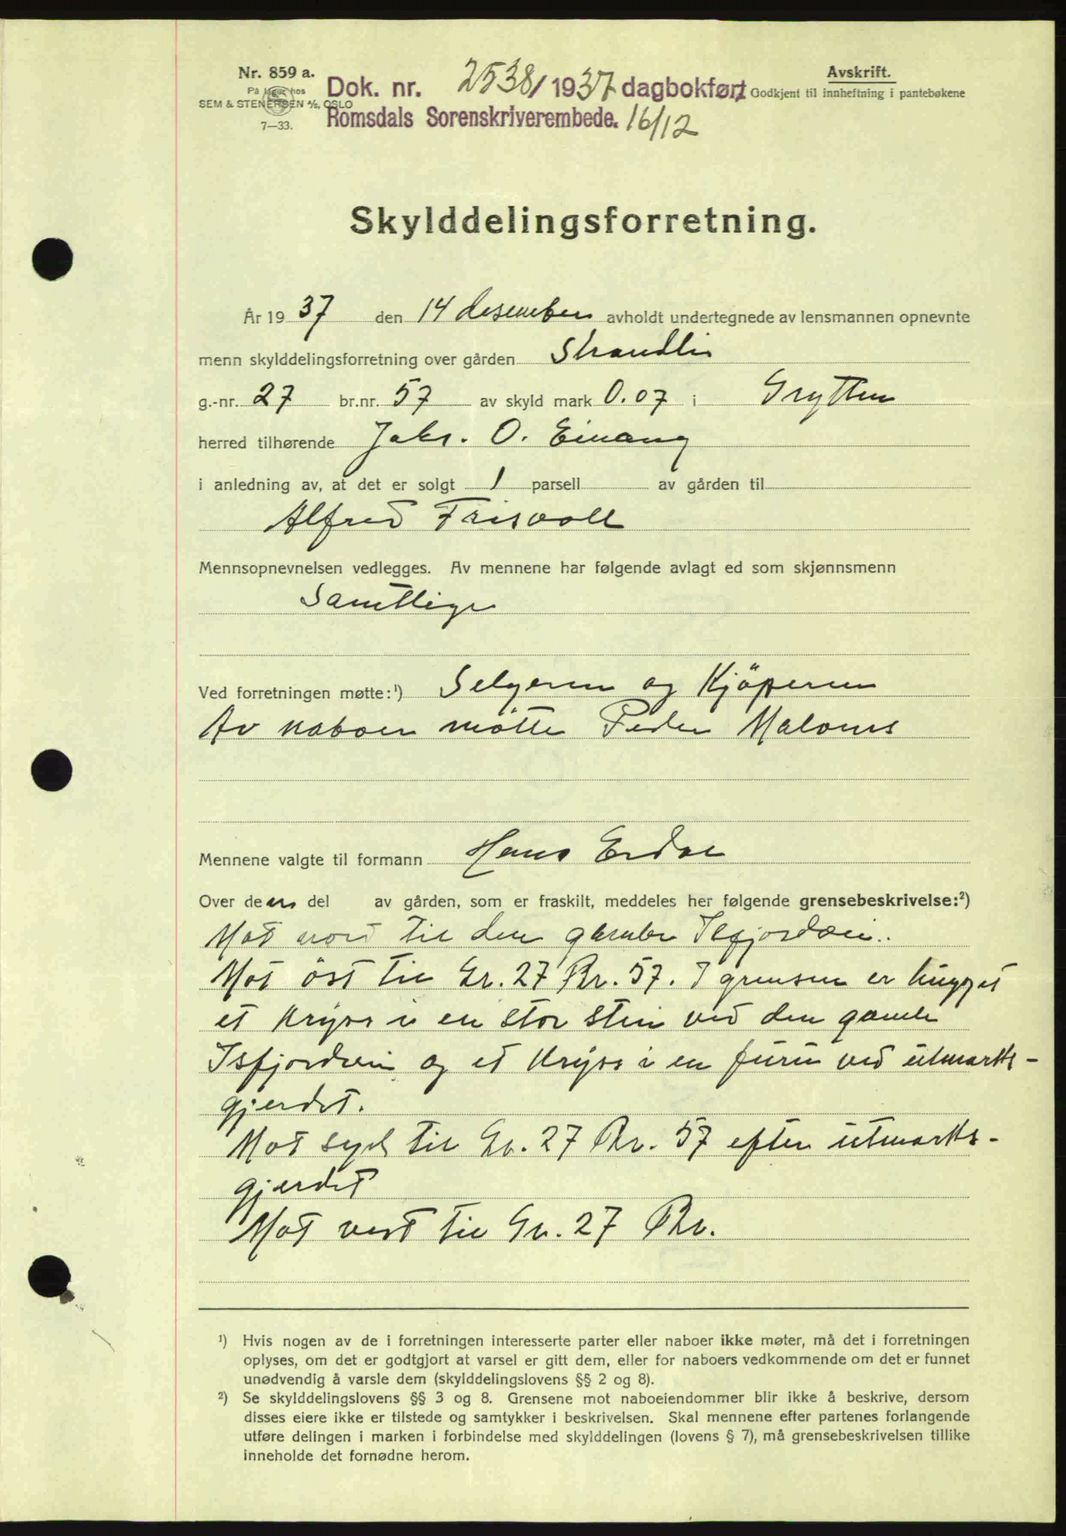 Nr. 859 a.
På lager hos
SEM & STENERSEN A/S, OSLO
7—33.
Dok. nr. 2538/1937 dagbokført
Romsdals Sorenskriverembede. 16/12
Avskrift.
Godkjent til innheftning i pantebøkene
Skylddelingsforretning.
År 1937 den 14 desember avholdt undertegnede av lensmannen opnevnte
menn skylddelingsforretning over gården Strandli
g.-nr. 27 br.nr. 57 av skyld mark 0.07 i Grytten
herred tilhørende Johs. O. Einang
i anledning av, at det er solgt 1 parsell av gården til
Alfred Frisvoll
Mennsopnevnelsen vedlegges. Av mennene har følgende avlagt ed som skjønnsmenn
Samtlige
Ved forretningen møtte:¹) Selgeren og Kjöperen
Av naboer mötte Peder
Mennene valgte til formann Hans
Over den del av gården, som er fraskilt, meddeles her følgende grensebeskrivelse:²)
Mot nord til den gamle Isfjordvei.
Mot öst til Gr. 27 Br. 57. I grensen er hugget
et Kryss i en stor stein ved den gamle
Isfjordvein og et Kryss i en furu ved utmarks-
gjerdet.
Mot syd til Gr. 27 Br. 57 efter utmarks-
gjerdet
Mot vest til Gr. 27 Br.
¹) Hvis nogen av de i forretningen interesserte parter eller naboer ikke møter, må det i forretningen
oplyses, om det er godtgjort at varsel er gitt dem, eller for naboers vedkommende om det er funnet
unødvendig å varsle dem (skylddelingslovens §§ 2 og 8).
²) Se skylddelingslovens §§ 3 og 8. Grensene mot naboeiendommer blir ikke å beskrive, dersom
disses eiere ikke er tilstede og samtykker i beskrivelsen. Skal mennene efter partenes forlangende
utføre delingen i marken i forbindelse med skylddelingen (lovens § 7), må grensebeskrivelsen tillike
inneholde det fornødne herom.